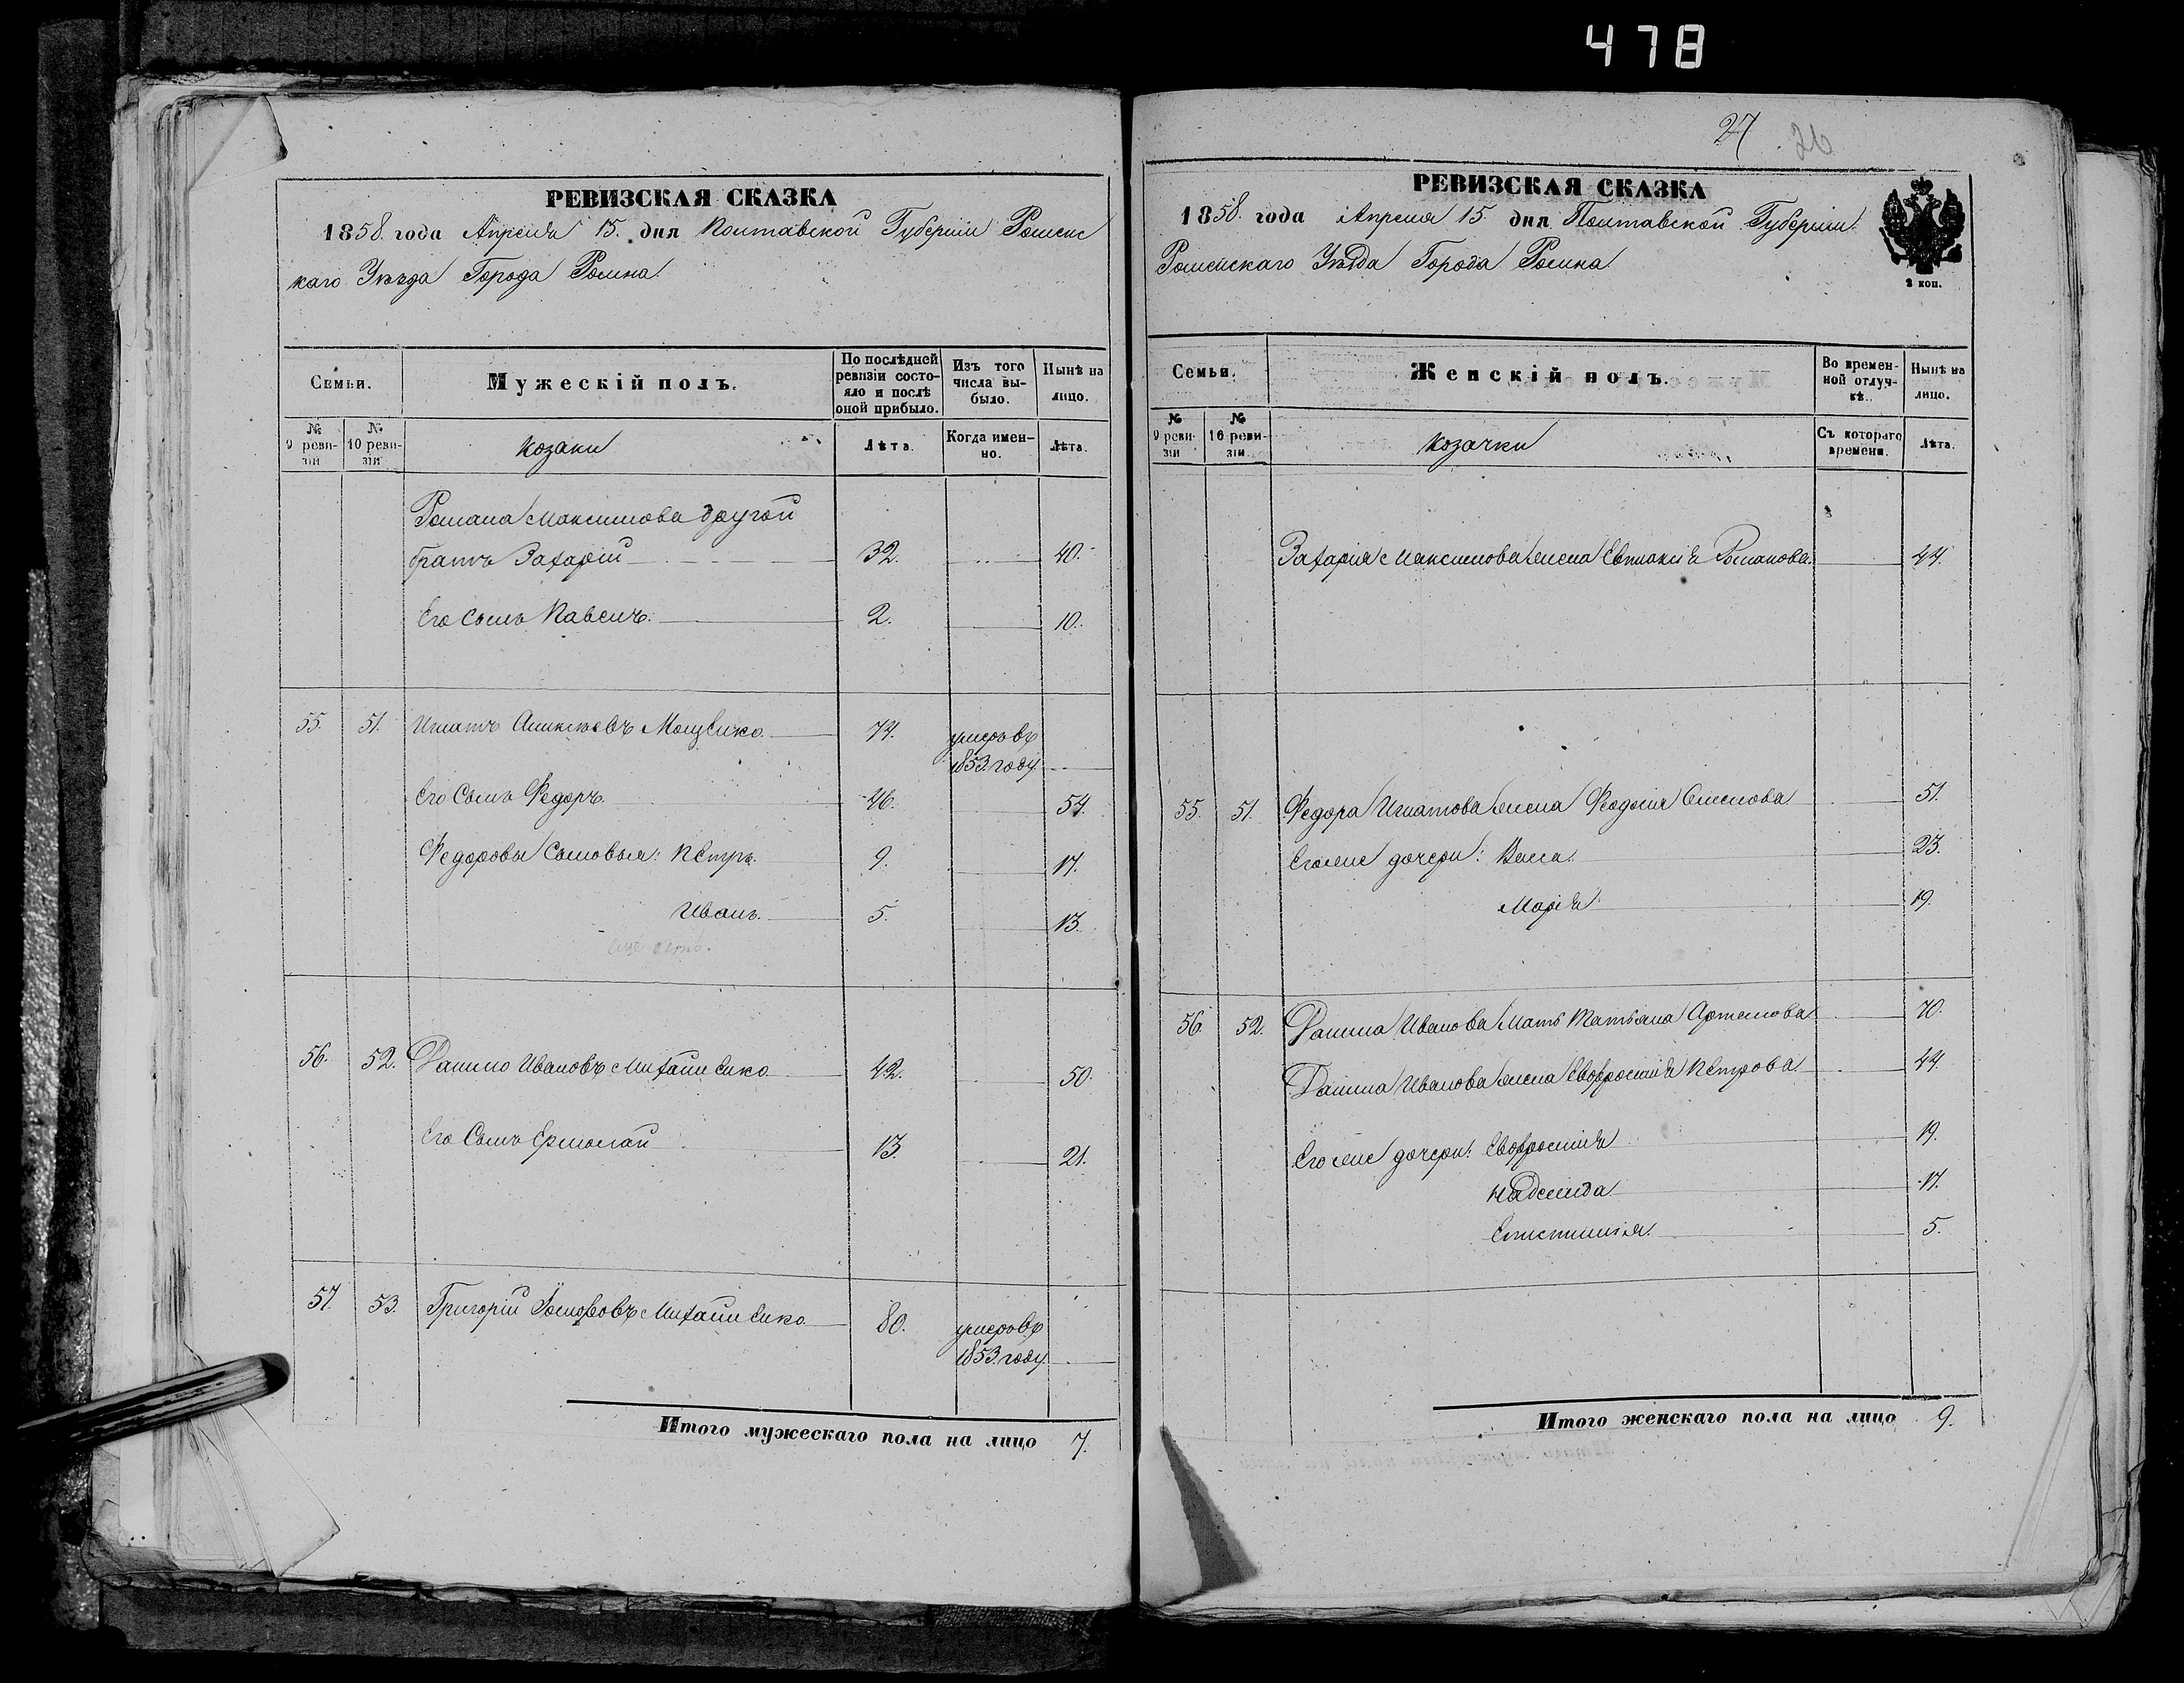 478
27
26
РЕВИЗСКАЯ СКАЗКА
1858. года Апреля 15. дня Полтавской Губерніи Роменс
каго Уѣзда Города Ромна
Семьи.
Мужескій полъ.
По послѣдней ревизіи состояло и послѣ оной прибыло.
Изъ того числа выбыло.
Нынѣ на лицо.
№ 9 ревизіи
№ 10 ревизіи
Козаки
Лѣта.
Когда именно.
Лѣта.
Романа Максимова другой
братъ Захарій 32. 40.
Его Сынъ Павелъ. 2. 10.
55. 51. Игнатъ Моценко 74. умеръ въ
1853. году
Его Сынъ Федоръ. 46. 54.
Федоровы Сыновья: Петръ. 9. 17.
Иванъ. 5. 13.
еще есть.
56. 52. Данило Ивановъ Михайленко 42. 50.
Его Сынъ Ермолай 13. 21.
57. 53. Григорій Михайленко 80. умеръ въ
1853. году
Итого мужескаго пола на лицо 7.
РЕВИЗСКАЯ СКАЗКА
1858. года Апреля 15. дня Полтавской Губерніи
Роменскаго Уѣзда Города Ромна
2 коп.
Семьи.
Женскій полъ.
Во временной отлучкѣ.
Нынѣ на лицо.
№ 9 ревизіи
№ 10 ревизіи
Козачки
Съ котораго времени.
Лѣта.
Захарія Максимова жена Романова. 44.
55. 51. Федора Игнатова жена Феодосія Семенова 51.
Егоже дочери: Васса. 23.
Марія 19.
56. 52. Данила Иванова Мать Татьяна Артемова 70.
Данила Иванова жена Евфросинія Петрова 44.
Егоже дочери: Евфросинія 19.
Надежда 17.
Епистимія. 5.
Итого женскаго пола на лицо 9.